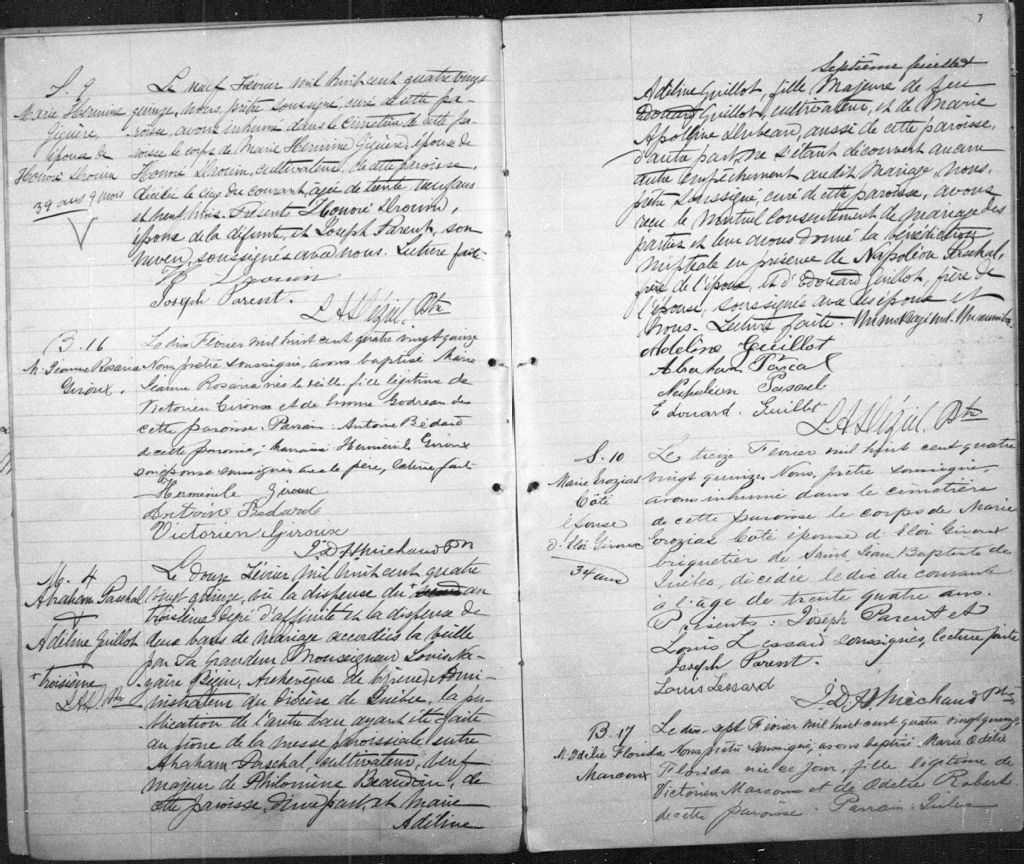 S. 9
Marie Hermine
Giguère,
épouse de
Honoré Drouin
39 ans 9 mois
Le neuf Février mil huit cent quatre vingt
quinze, nous, prêtre soussigné, curé de cette pa-
roisse, avons inhumé dans le cimetière de cette pa-
roisse le corps de Marie Hermine Giguère, épouse de
Honoré Drouin, cultivateur, de cette paroisse,
décédée le cinq du courant, agée de trente neuf ans
et neuf mois. Présents Honoré Drouin,
époux de la défunte, et Joseph Parent, son
neveu, soussignés avec nous. Lecture faite.
H Drouin
Joseph Parent.
Ptre
B. 16
M. Jeanne Rosaria
Giroux.
Le dix Février mil huit cent quatre vingt quinze
Nous prêtre soussigné, avons baptisé Marie
Jeanne Rosaria née la veille, fille légitime de
Victorien Giroux et de Emma Godreau de
cette paroisse. Parrain: Antoine Bédard
de cette paroisse; marraine: Herménile Giroux
son épouse soussignés avec le père, lecture faite
Herménile Giroux
Antoine Bédard
Victorien Giroux
J. D. Michaud Ptr
M. 4
Abraham Paschal
&
Adéline Guillot
troisième
Ptre
Le douze Février mil huit cent quatre
vingt quinze, vu la dispense du au
troisième degré d'affinité et la dispense de
deux bans de mariage accordées la veille
par Sa Grandeur Monseigneur Louis Na-
zaire Bégin, Archevêque de Cyrène, Admi-
nistrateur du diocèse de Québec, la pu-
blication de l'autre ban ayant été faite
au prône de la messe paroissiale entre
Abraham Paschal, cultivateur, veuf
majeur de Philomène Beaudoin, de
cette paroisse, d'une part, et Marie
Adéline
7
Septième feuillet
Adéline Guillot, fille Majeure de feu
Edouard Guillot, cultivateur, et de Marie
Apolline Dubeau, aussi de cette paroisse,
d'autre part, ne s'étant découvert aucun
autre empêchement au dit Mariage, Nous,
prêtre soussigné, curé de cette paroisse, avons
reçu le mutuel consentement de mariage des
parties et leur avons donné la bénédiction
nuptiale en présence de Napoléon Paschal,
frère de l'époux, et d'Edouard Guillot, frère de
l'épouse, soussignés avec les époux et
Nous. Lecture faite.
Adéline Guillot
Abraham Pascal
Napoléon Pascal
Edouard Guillot
Ptre
S. 10
Marie Crozias
Côté
épouse
d'Eloi Giroux
34 ans
Le treize Février mil huit cent quatre
vingt quinze, Nous, prêtre soussigné,
avons inhumé dans le cimetière
de cette paroisse le corps de Marie
Crozias Côté épouse d'Eloi Giroux
briquetier de Saint Jean Baptiste de
Québec, décédée le dix du courant
à l'âge de trente quatre ans.
Présents: Joseph Parent et
Louis Lessard soussignés, lecture faite
Joseph Parent.
Louis Lessard
J. D. Michaud Ptre
B. 17
M. Odélie Florida
Marcoux
Le dix-sept Février mil huit cent quatre vingt quinze,
Nous prêtre soussigné, avons baptisé Marie Odélie
Florida née ce jour, fille légitime de
Victorien Marcoux et de Odélie Robert
de cette paroisse Parrain: Jules